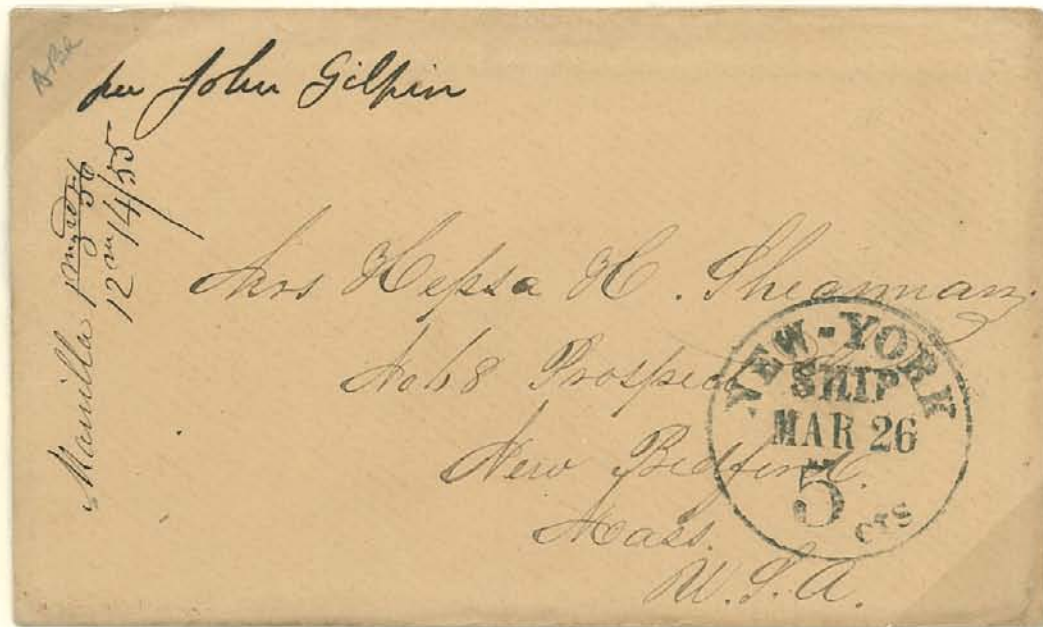 per John Gilpin
Manilla
12 m 14/55
Mrs Hepsa H. Shearman,
No 68 Prospect
New Bedford.
Mass.
U.S.A.
NEW-YORK
SHIP
MAR 26
5 CTS